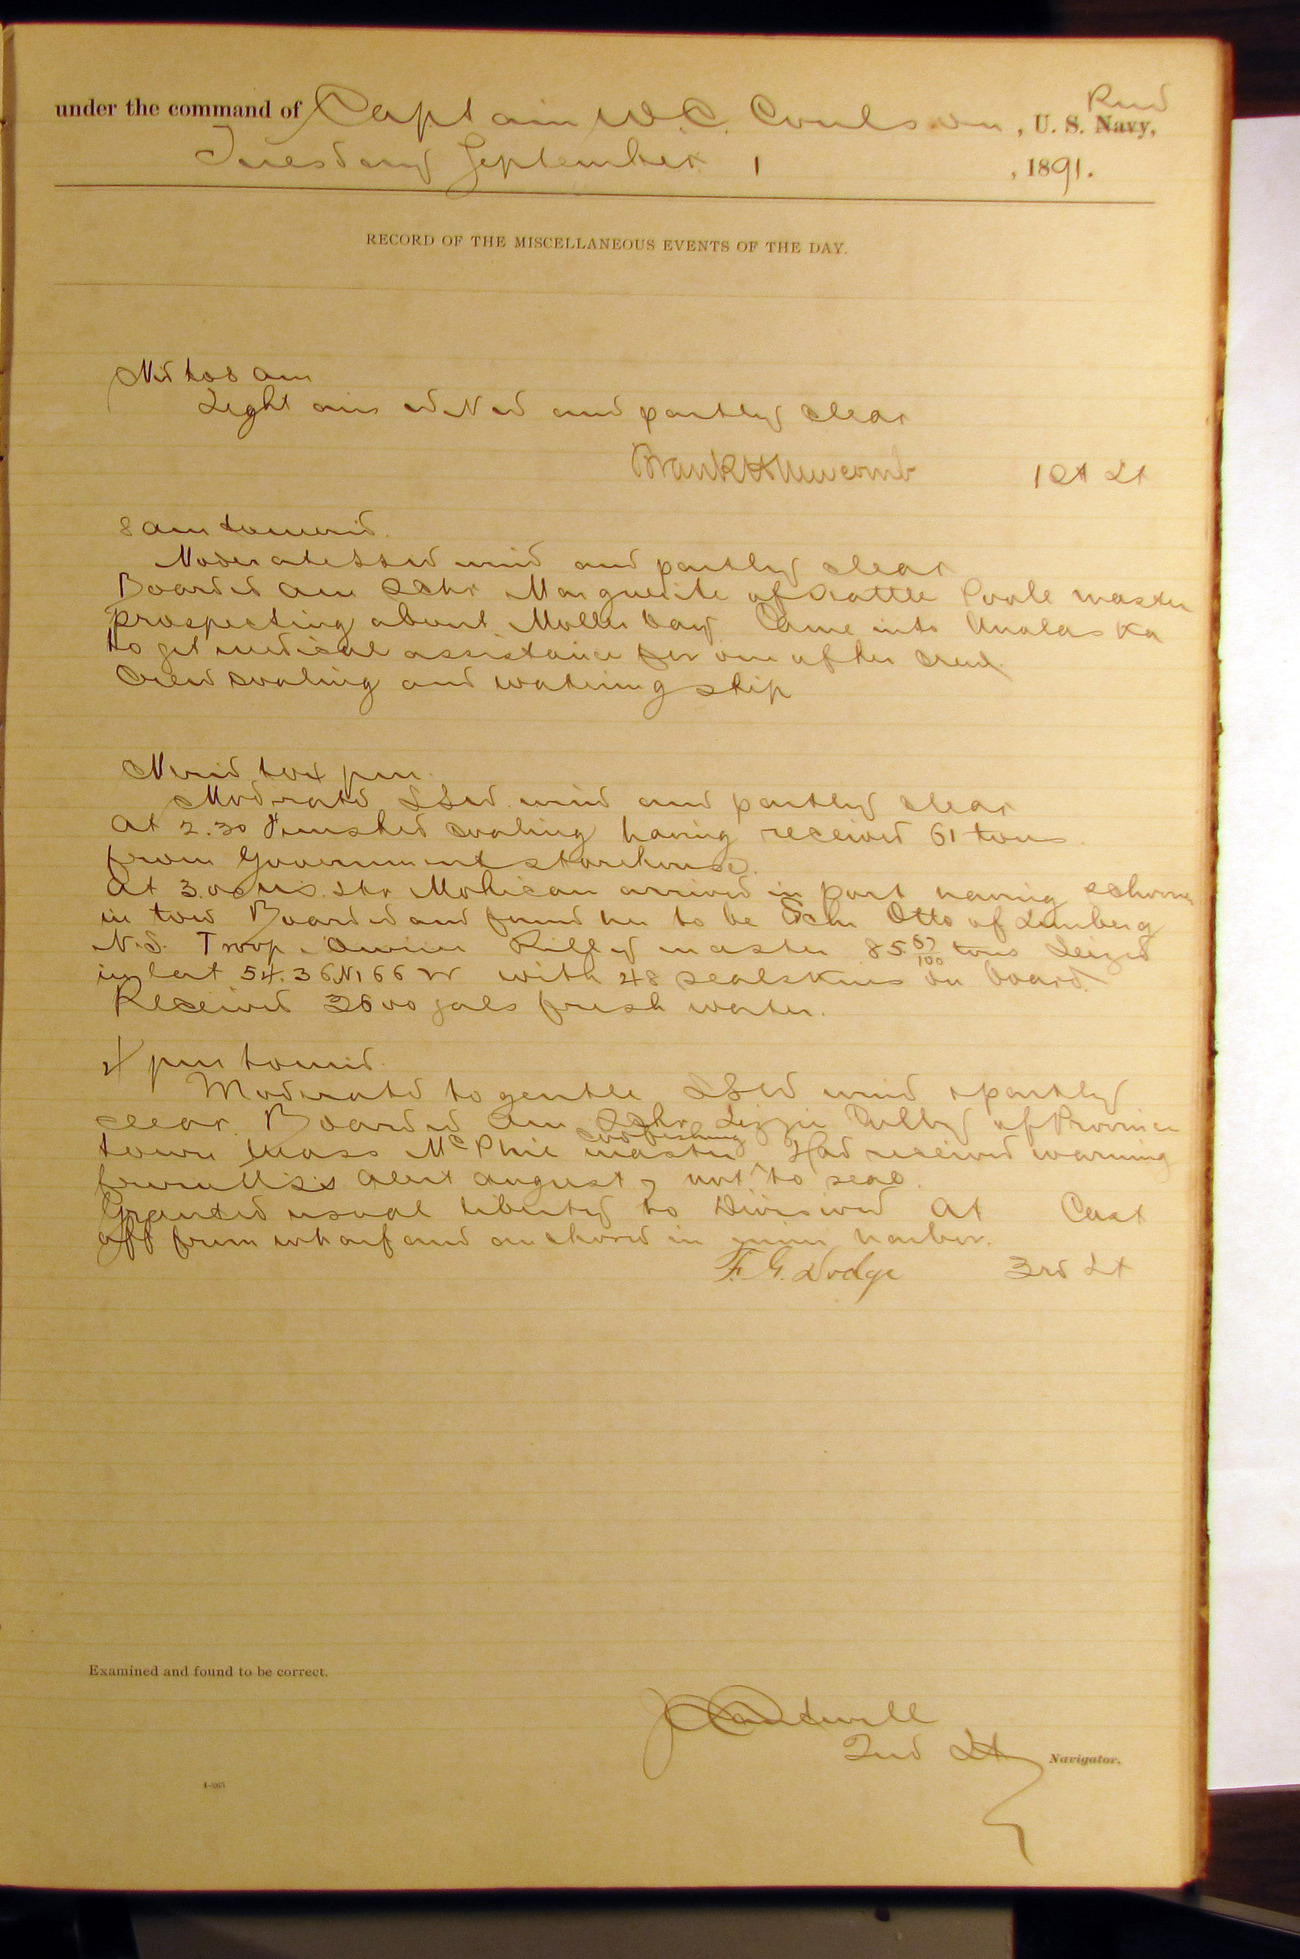 under the command of Captain W.C. Coulson, U. S. Navy,
Rev
Tuesday September 1, 1891.
RECORD OF THE MISCELLANEOUS EVENTS OF THE DAY.
Mid to 8 am
Light airs and partly clear
Frank H Newcomb 1st Lt
8 am to merid.
Moderate SSW wind and partly clear
Boarded Am Schr Marguerite of Seattle Poole master
prospecting about Moller bay Came into Unalaska
to get medical assistance for one of her crew
Crew coaling and watering ship
Merid to 4 pm.
Moderate SSW wind and partly clear
At 2.30 Finished coaling having received 61 tons
from Government storehouse.
At 3.05 U.S. Str Mohican arrived in port having schooner
in tow Boarded and found her to be Schr Otto of
N.S. Troop Owner Rilley master 85 67/100 tons Seized
in lat 54.36 N 166 W with 48 sealskins on board.
Received 3600 gals fresh water.
4 pm to mid.
Moderate to gentle SSW wind & partly
clear. Boarded Am Schr Lizzie Colby of Province
town Mass McPhie master codfishing Had received warning
from USS Alert August 7 not to seal.
Granted usual liberty to Division At Cast
off from wharf and anchored in inner harbor.
F. G. Dodge 3rd Lt
Examined and found to be correct.
J C Cantwell
2nd Lt Navigator.